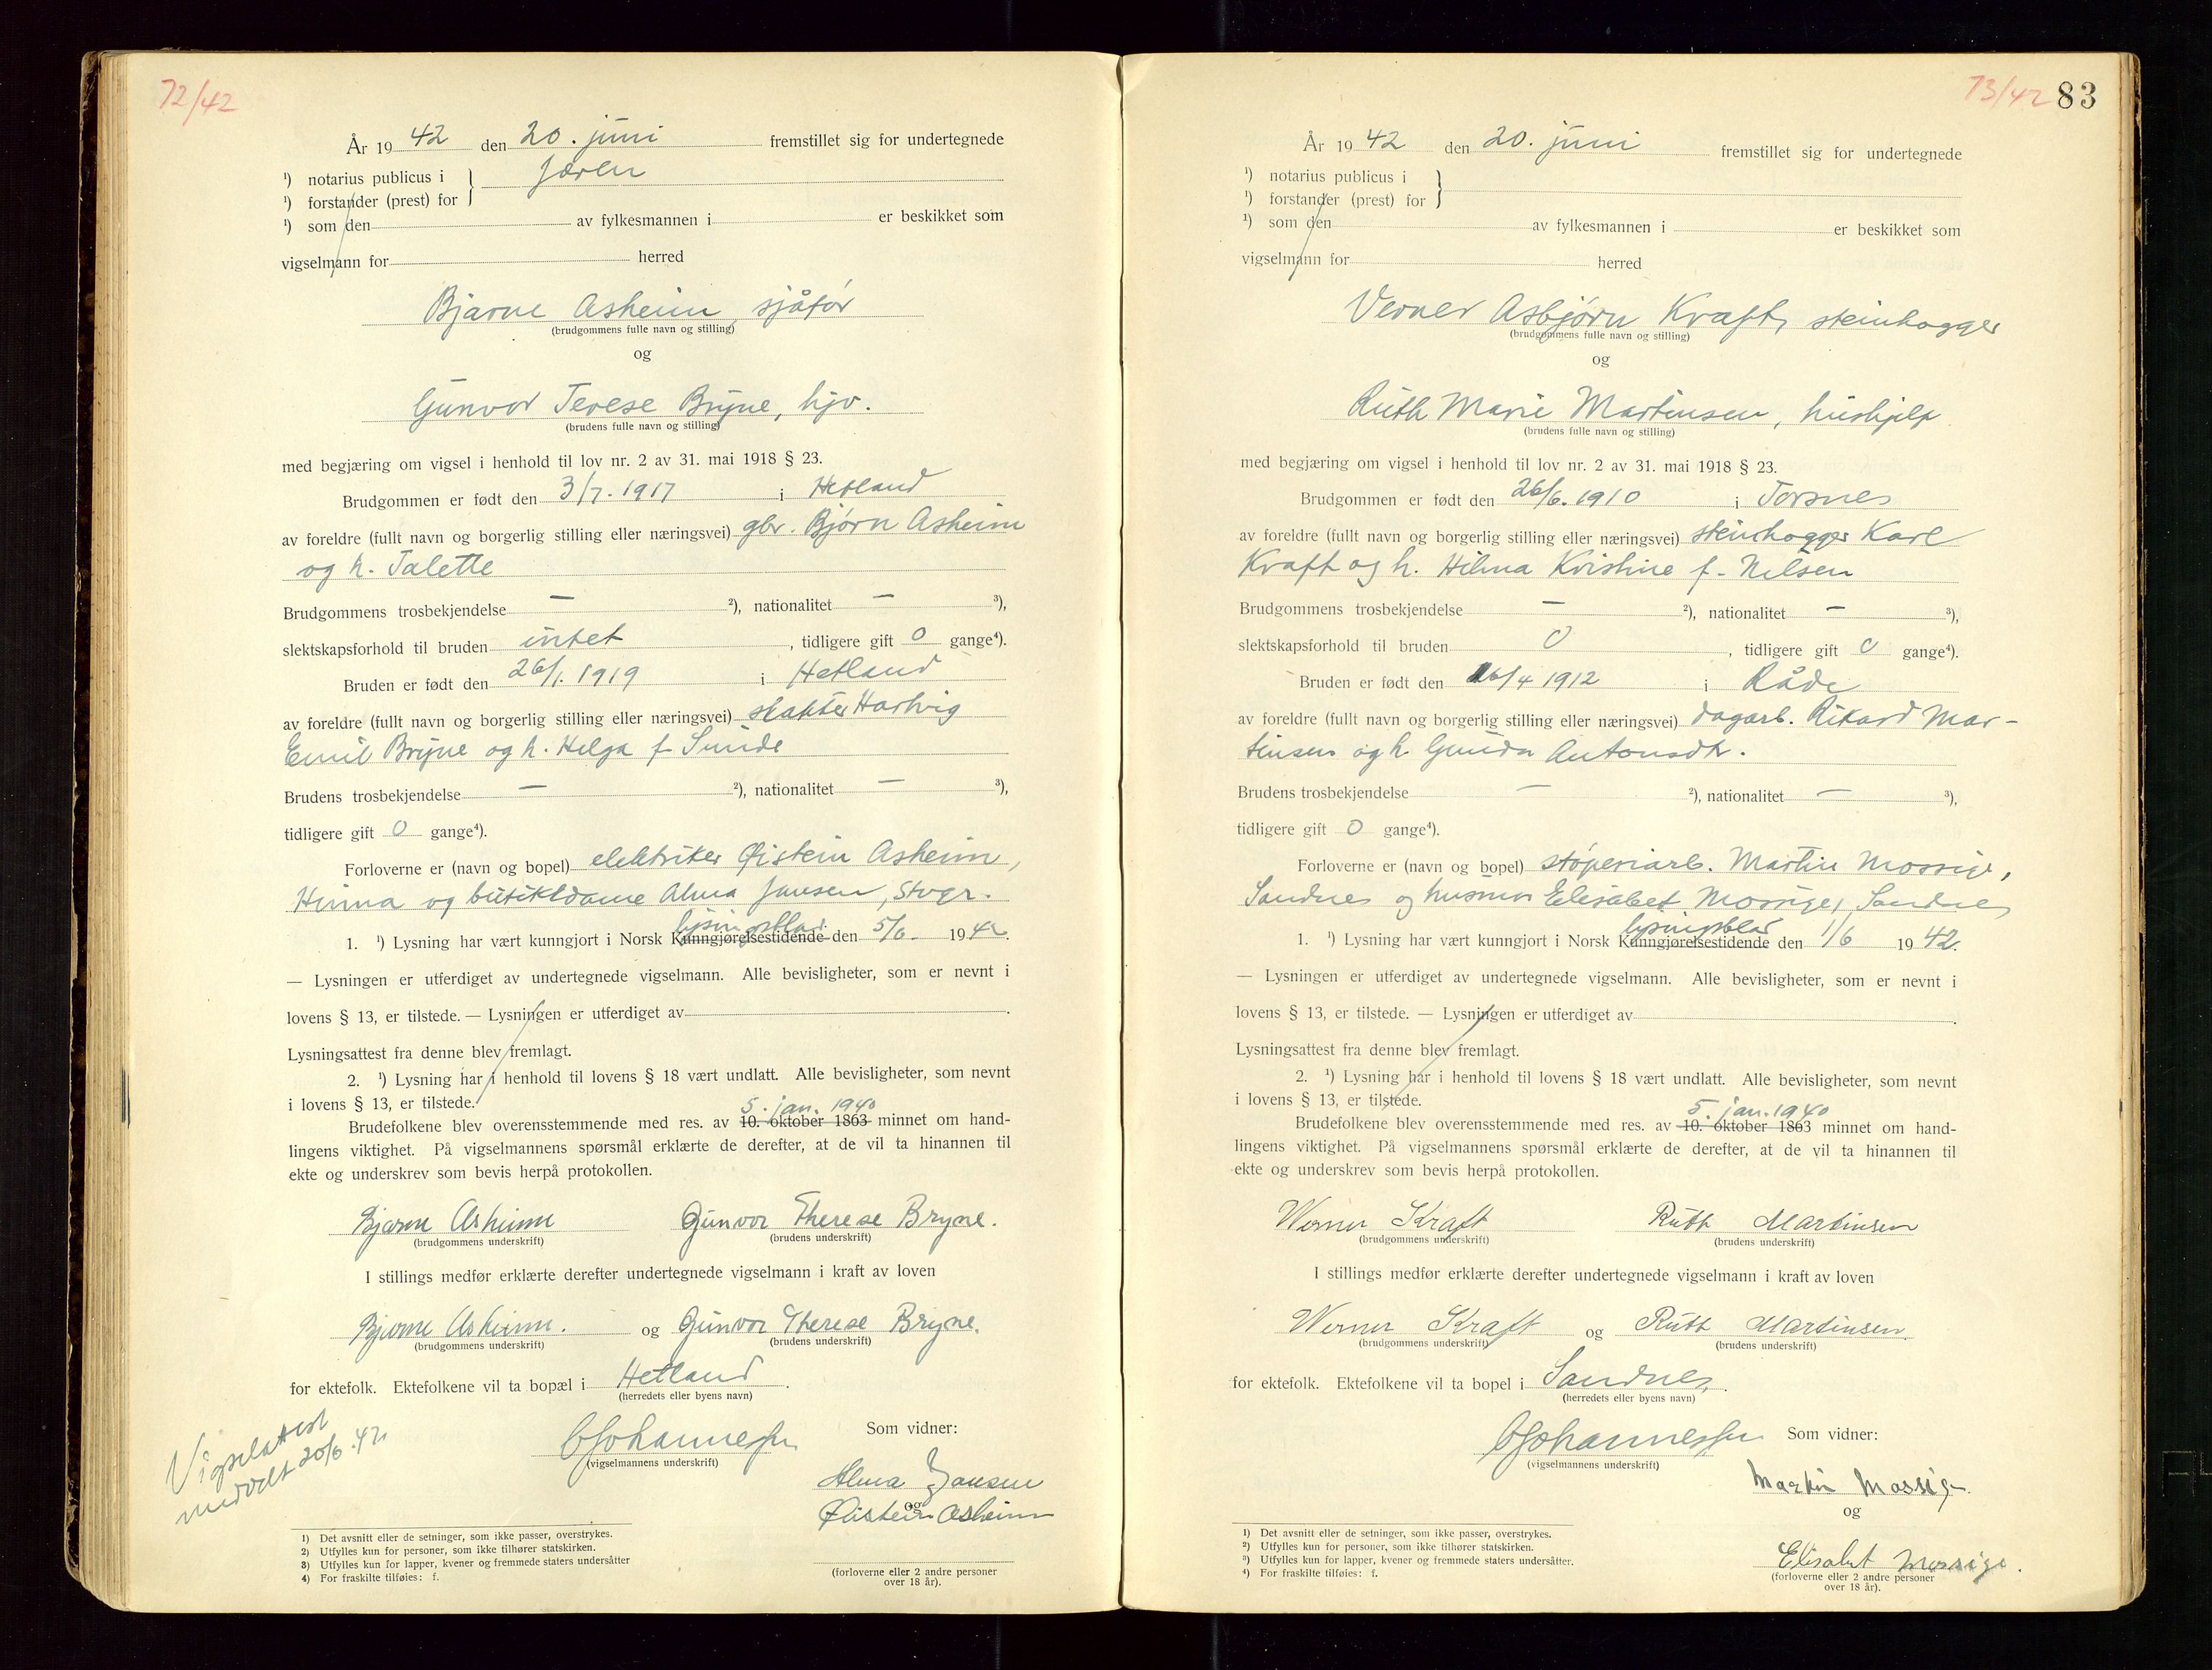 72/42
År 1942 den 20. juni fremstillet sig for undertegnede
¹) notarius publicus i } Jæren
¹) forstander (prest) for
¹) som den av fylkesmannen i er beskikket som
vigselmann for herred
Bjarne Asheim, sjåfør
(brudgommens fulle navn og stilling)
og
Gunvor Terese Bryne, hjv.
(brudens fulle navn og stilling)
med begjæring om vigsel i henhold til lov nr. 2 av 31. mai 1918 § 23.
Brudgommen er født den 3/7. 1917 i Hetland
av foreldre (fullt navn og borgerlig stilling eller næringsvei) gbr. Bjørn Asheim
og h. Talette
Brudgommens trosbekjendelse — ²), nationalitet — ³),
slektskapsforhold til bruden intet, tidligere gift 0 gange⁴).
Bruden er født den 26/1. 1919 i Hetland
av foreldre (fullt navn og borgerlig stilling eller næringsvei) slakter Hartvig
Emil Bryne og h. Helga f. Sunde
Brudens trosbekjendelse — ²), nationalitet — ³),
tidligere gift 0 gange⁴).
Forloverne er (navn og bopel) elektriker Øistein Asheim,
Hinna og butikkdame Alma Jansen, Stvgr.
lysingsblad
1. ¹) Lysning har vært kunngjort i Norsk Kunngjørelsestidende den 5/6. 1942.
— Lysningen er utferdiget av undertegnede vigselmann. Alle bevisligheter, som er nevnt i
lovens § 13, er tilstede. — Lysningen er utferdiget av .
Lysningsattest fra denne blev fremlagt.
2. ¹) Lysning har i henhold til lovens § 18 vært undlatt. Alle bevisligheter, som nevnt
i lovens § 13, er tilstede.
5. jan. 1940
Brudefolkene blev overensstemmende med res. av 10. oktober 1863 minnet om hand-
lingens viktighet. På vigselmannens spørsmål erklærte de derefter, at de vil ta hinannen til
ekte og underskrev som bevis herpå protokollen.
Bjarne Asheim Gunvor Therese Bryne.
(brudgommens underskrift) (brudens underskrift)
I stillings medfør erklærte derefter undertegnede vigselmann i kraft av loven
Bjarne Asheim. og Gunvor Therese Bryne.
(brudgommens underskrift) (brudens underskrift)
for ektefolk. Ektefolkene vil ta bopæl i Hetland.
(herredets eller byens navn)
Vigselattest
meddelt 20/6.42
Johannessen
(vigselmannens underskrift)
Som vidner:
Alma Jansen
og
Øistein Asheim
(forloverne eller 2 andre personer
over 18 år).
1) Det avsnitt eller de setninger, som ikke passer, overstrykes.
2) Utfylles kun for personer, som ikke tilhører statskirken.
3) Utfylles kun for lapper, kvener og fremmede staters undersåtter
4) For fraskilte tilføies: f.
73/42 83
År 1942 den 20. juni fremstillet sig for undertegnede
¹) notarius publicus i }
¹) forstander (prest) for
¹) som den av fylkesmannen i er beskikket som
vigselmann for herred
Verner Asbjørn Kraft, steinhogger
(brudgommens fulle navn og stilling)
og
Ruth Marie Martinsen, hushjelp
(brudens fulle navn og stilling)
med begjæring om vigsel i henhold til lov nr. 2 av 31. mai 1918 § 23.
Brudgommen er født den 26/6. 1910 i Torsnes
av foreldre (fullt navn og borgerlig stilling eller næringsvei) steinhogger Karl
Kraft og h. Hilma Kristine f. Nilsen
Brudgommens trosbekjendelse — ²), nationalitet — ³),
slektskapsforhold til bruden 0, tidligere gift 0 gange⁴).
Bruden er født den 16/4 1912 i Råde
av foreldre (fullt navn og borgerlig stilling eller næringsvei) dagarb. Rikard Mar-
tinsen og h Gunda Antonsdtr.
Brudens trosbekjendelse — ²), nationalitet — ³),
tidligere gift 0 gange⁴).
Forloverne er (navn og bopel) støperiarb. Martin Mossige,
Sandnes og husmor Elisabet Mossige, Sandnes
lysingsblad
1. ¹) Lysning har vært kunngjort i Norsk Kunngjørelsestidende den 1/6 1942.
— Lysningen er utferdiget av undertegnede vigselmann. Alle bevisligheter, som er nevnt i
lovens § 13, er tilstede. — Lysningen er utferdiget av .
Lysningsattest fra denne blev fremlagt.
2. ¹) Lysning har i henhold til lovens § 18 vært undlatt. Alle bevisligheter, som nevnt
i lovens § 13, er tilstede.
5. jan. 1940
Brudefolkene blev overensstemmende med res. av 10. oktober 1863 minnet om hand-
lingens viktighet. På vigselmannens spørsmål erklærte de derefter, at de vil ta hinannen til
ekte og underskrev som bevis herpå protokollen.
Werner Kraft Ruth Martinsen
(brudgommens underskrift) (brudens underskrift)
I stillings medfør erklærte derefter undertegnede vigselmann i kraft av loven
Werner Kraft og Ruth Martinsen.
(brudgommens underskrift) (brudens underskrift)
for ektefolk. Ektefolkene vil ta bopel i Sandnes.
(herredets eller byens navn)
Johannessen
(vigselmannens underskrift)
Som vidner:
Martin Mossige.
og
Elisabet Mossige.
(forloverne eller 2 andre personer
over 18 år).
1) Det avsnitt eller de setninger, som ikke passer, overstrykes.
2) Utfylles kun for personer, som ikke tilhører statskirken.
3) Utfylles kun for lapper, kvener og fremmede staters undersåtter.
4) For fraskilte tilføies: f.